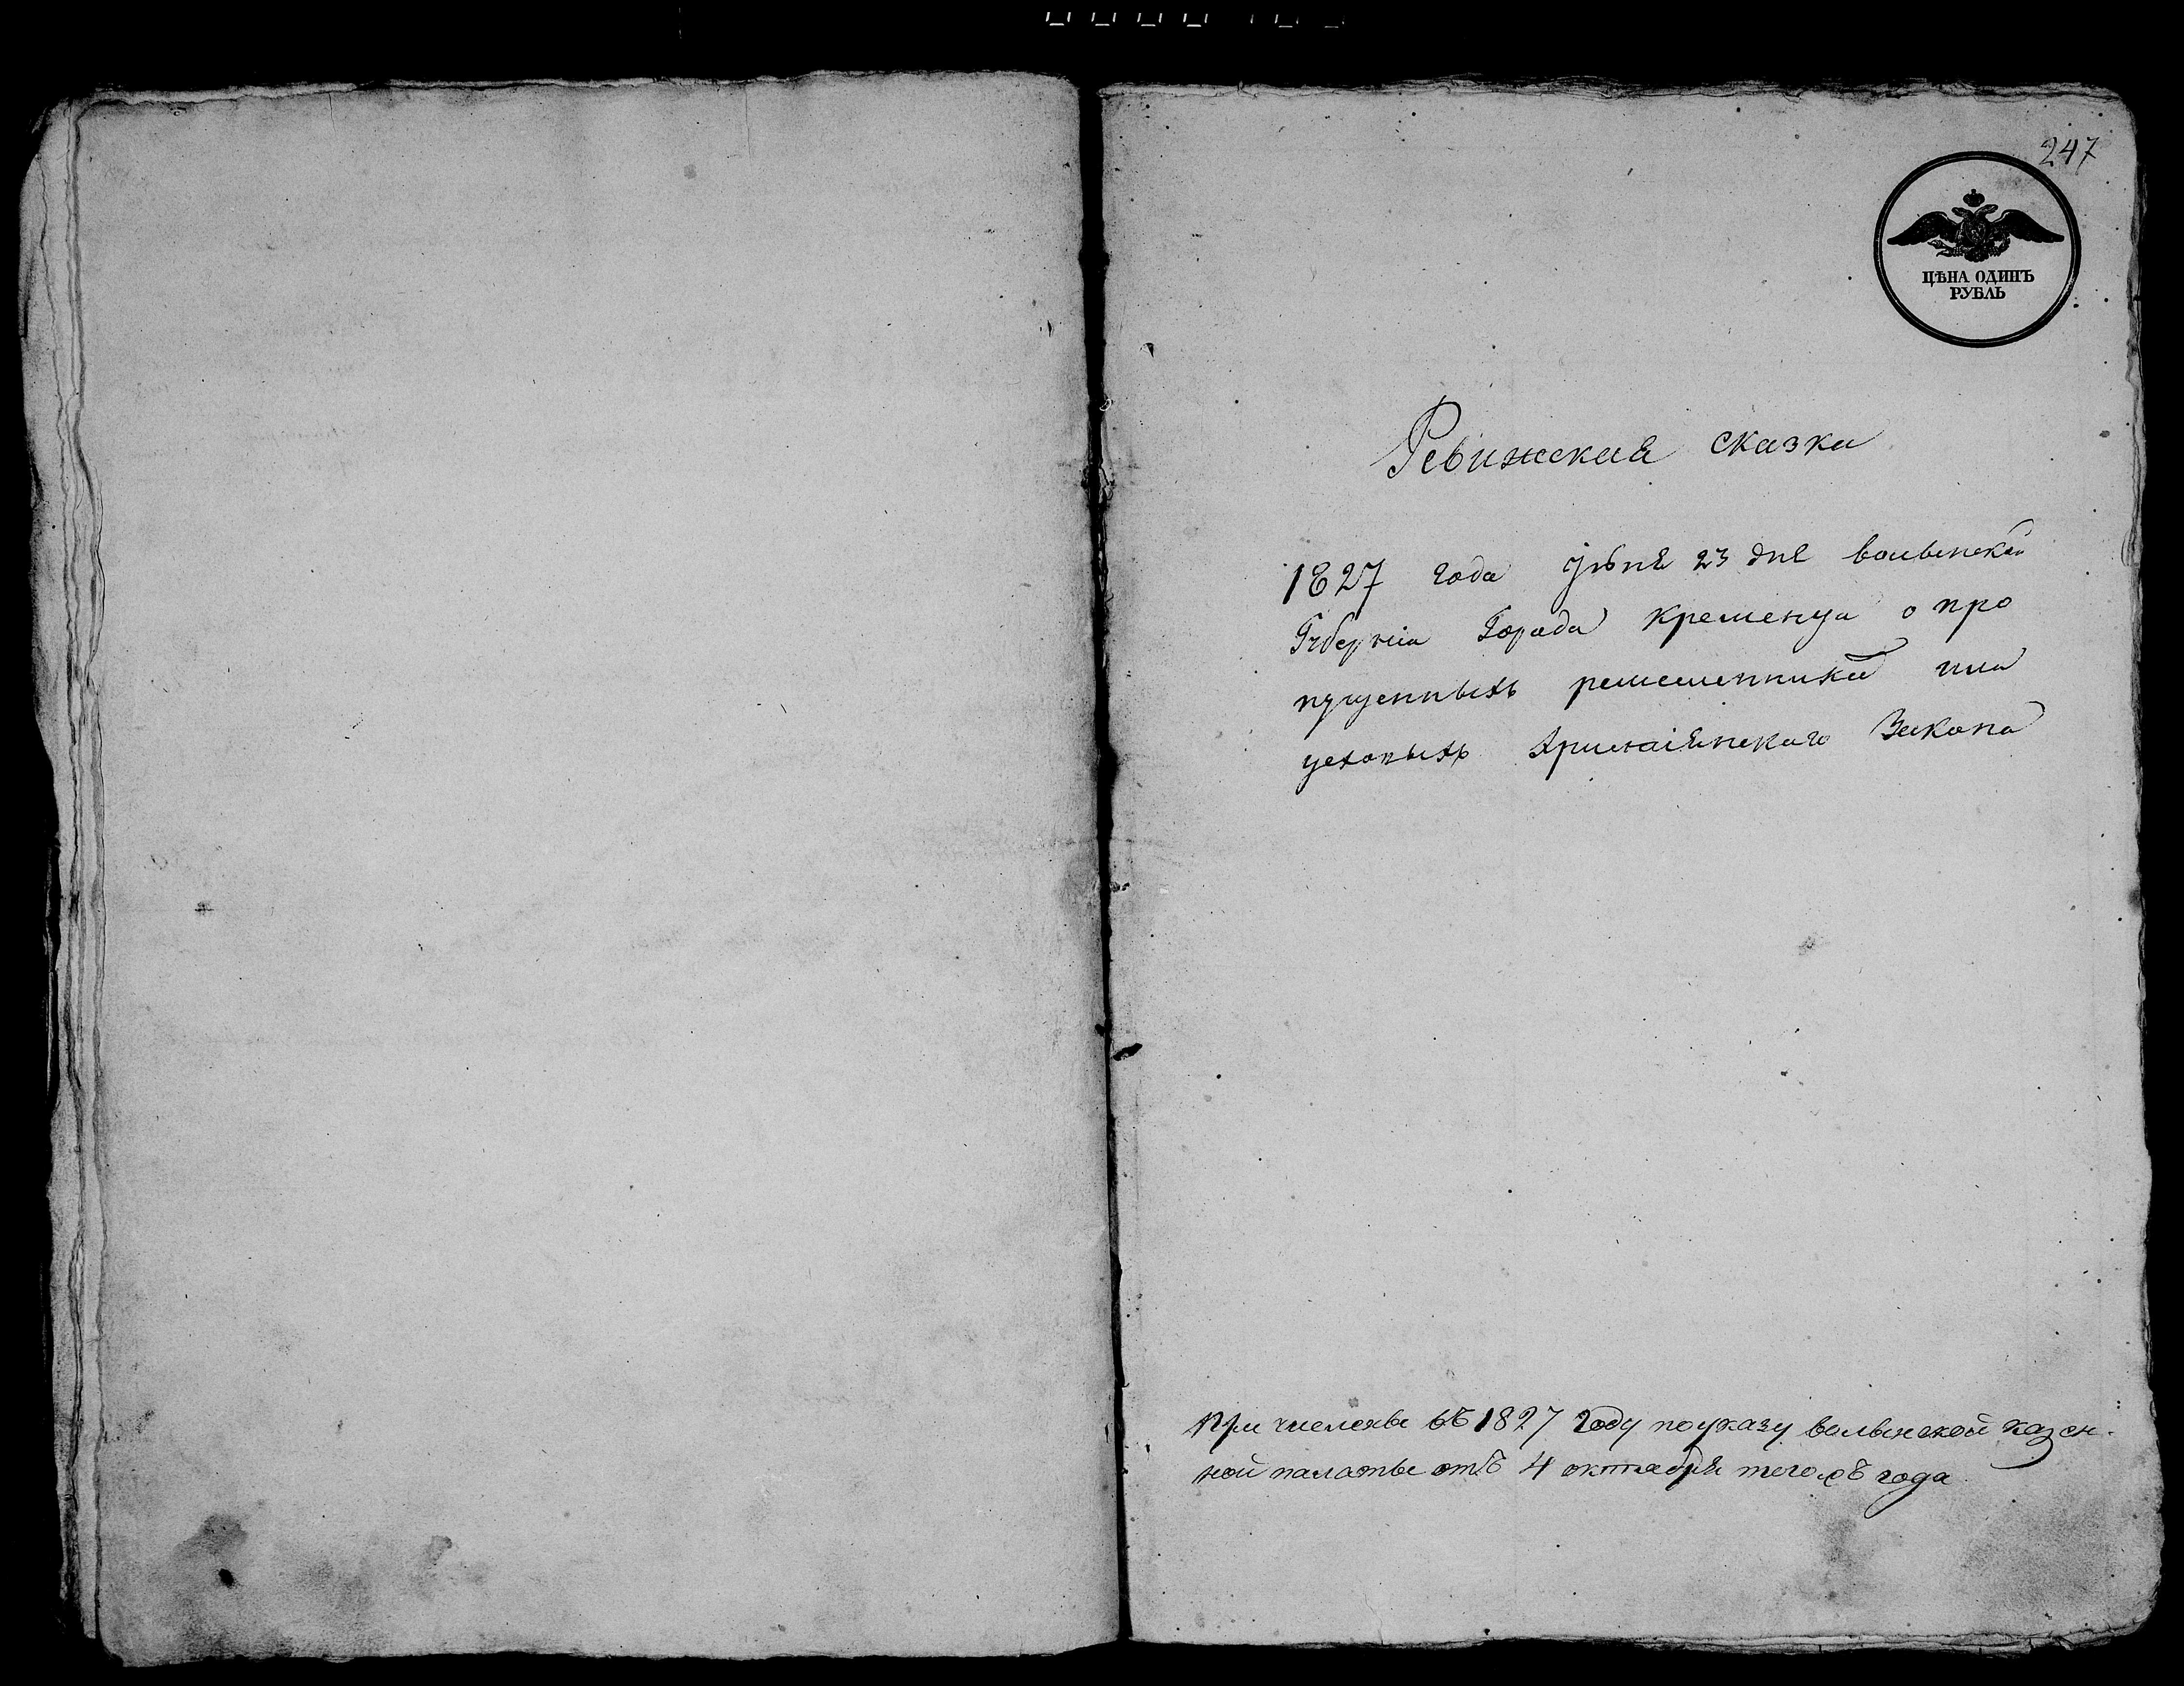 247
ЦѢНА ОДИНЪ
РУБЛЬ
Ревижская сказка
1827 года Іюня 23 дня волынской
Губерніи Города Кременца о про
пущенныхъ ремесленники или
цехоныхъ Християнскаго Закона
При числены въ 1827 году по указу волынской казен-
ной палаты отъ 4 октября тогожъ года